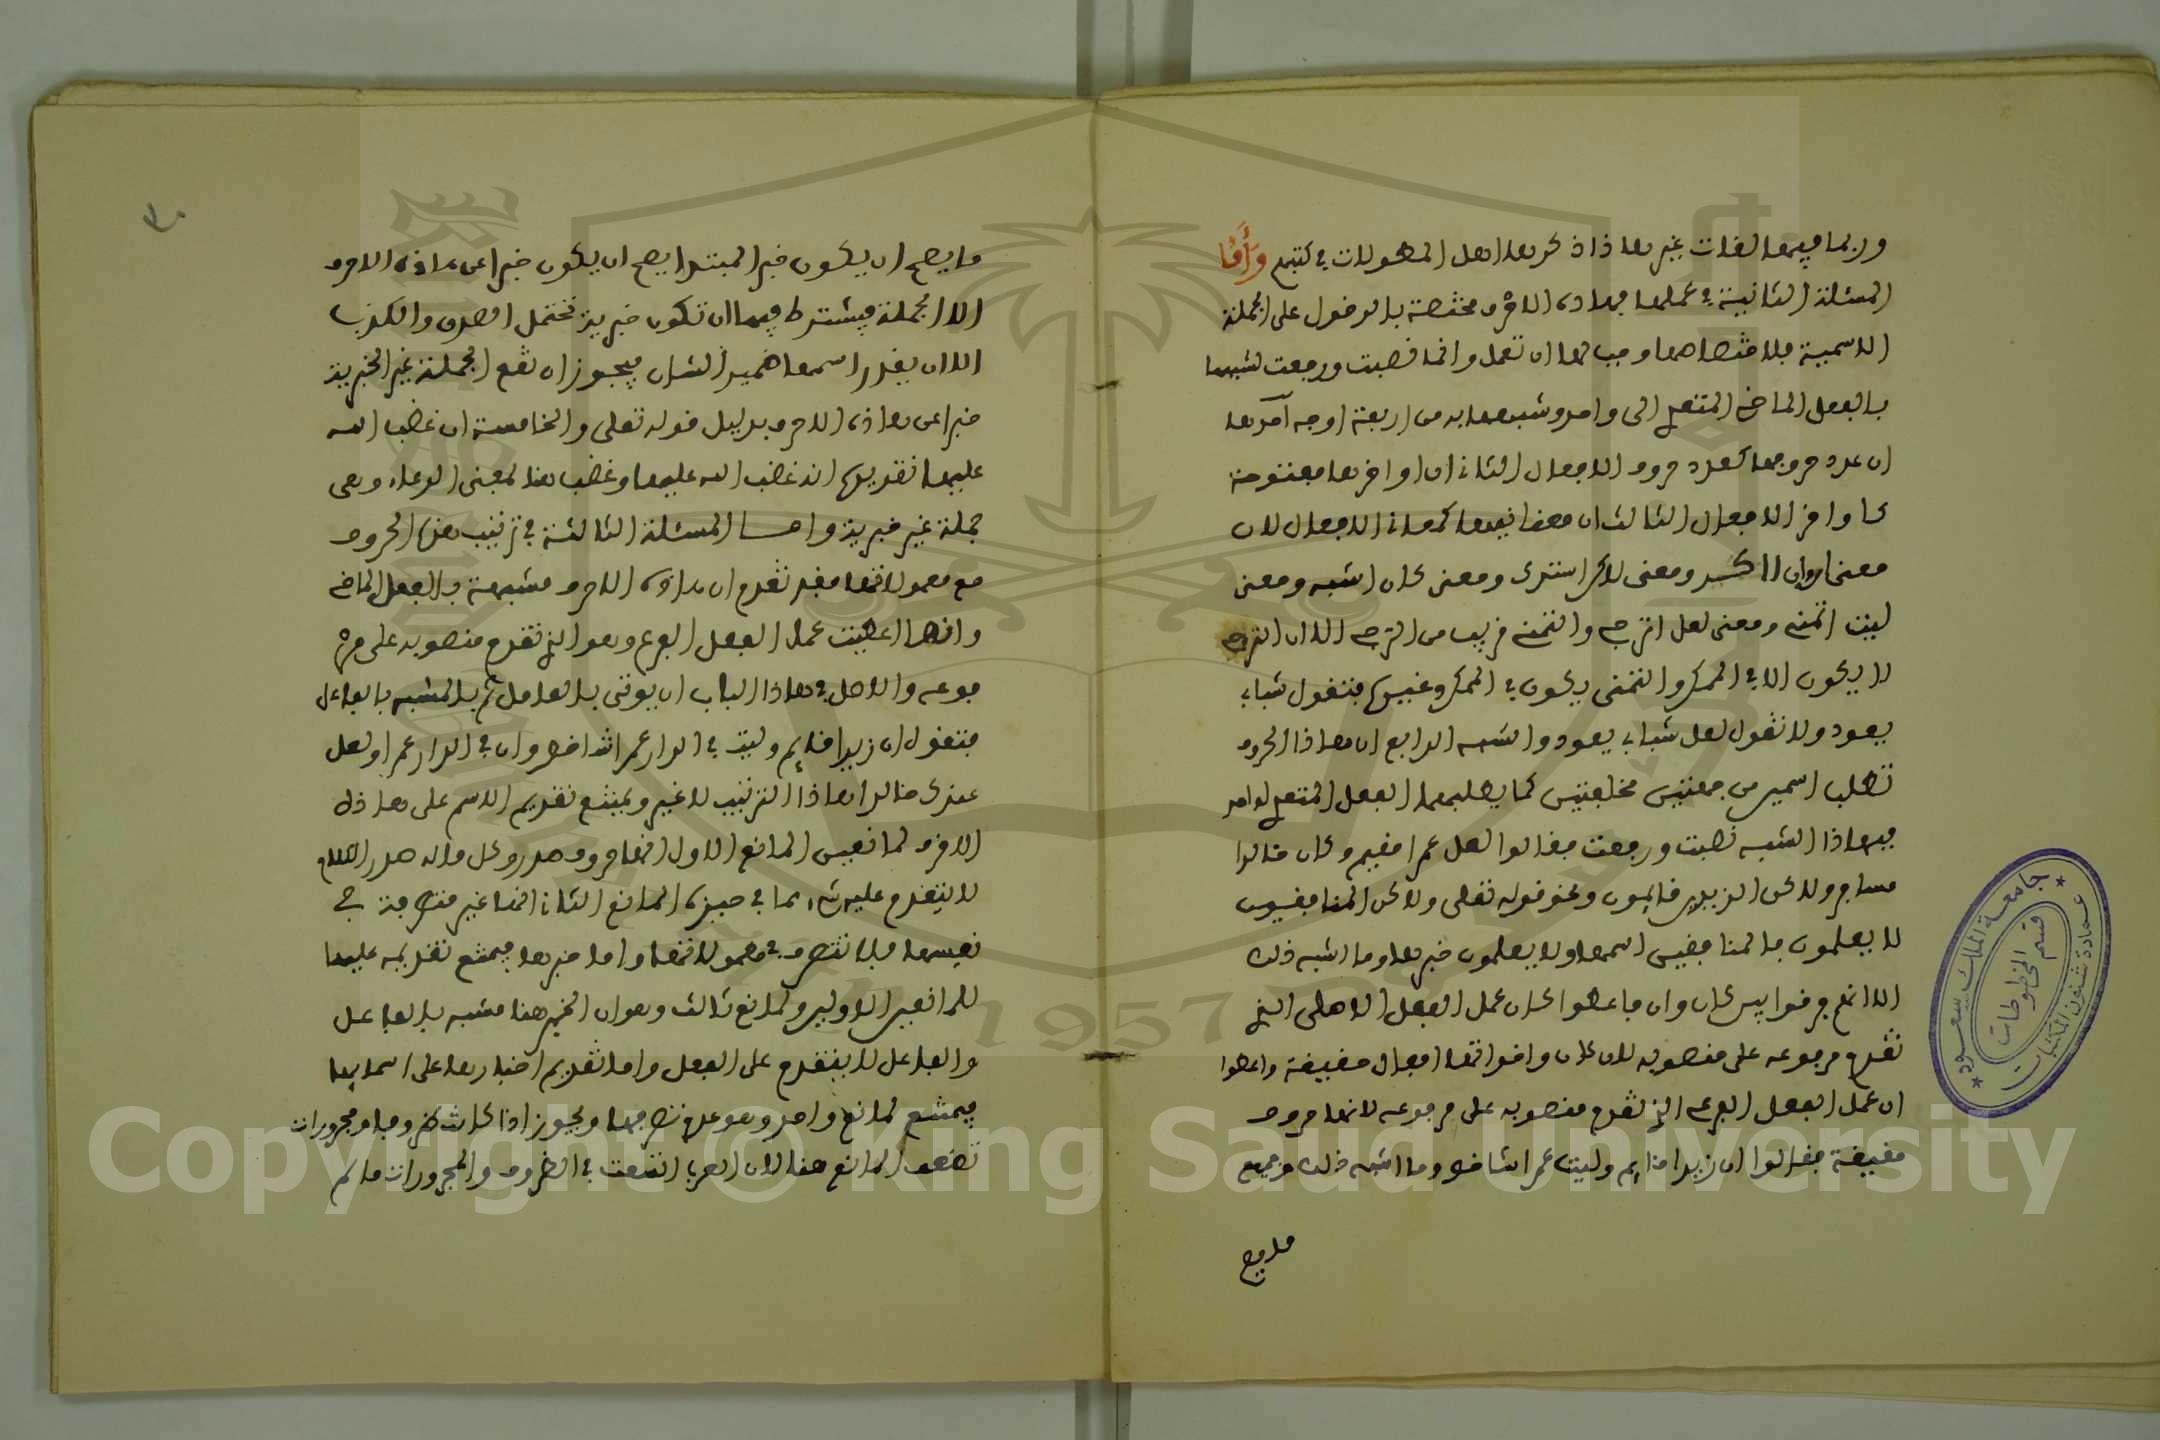 وربما فيها لغات غير هاذا ذكرها اهل المطولات في كتبهم وَأَمَّا
المسئلة الثانية في عملها فهاذه الاحرف مختصة بالدخول على الجملة
الاسمية فلاختصاصها وجب لها ان تعمل وانما نصبت ورفعت لشبهها
بالفعل الماضي المتعدي الى واحد وشبهها به من اربعة اوجه احدها
ان عدد حروفها كعدد حروف الافعال الثاني ان اواخرها مفتوحة
كاواخر الافعال الثالث ان معانيها كمعاني الافعال لان
معنى ان وان اكد ومعنى لاكن استدرك ومعنى كان اشبه ومعنى
ليت اتمنى ومعنى لعل اترجى والتمني قريب من الترجي الا ان الترجي
لا يكون الا في الممكن والتمني يكون في الممكن وغيره فتقول ليت شباب
يعود ولا تقول لعل شباب يعود والشبه الرابع ان هاذا الحروف
تطلب اسمين من جهتين مختلفتين كما يطلبهما الفعل المتعدي لواحد
فبهاذا الشبه نصبت ورفعت فقالوا لعل عمرا مقيم وكان خالدا
مسافر ولاكن الزيدين قائمون ونحو قوله تعلى ولاكن المنافقين
لا يعلمون فالمنافقين اسمها ولا يعلمون خبرها وما اشبه ذلك
الا انهم فرقوا بين كان وان فاعطوا كان عمل الفعل الاصلي الذي
تقدم مرفوعه على منصوبه لان كان واخواتها افعال حقيقة واعطوا
ان عمل الفعل الفرعي الذي تقدم منصوبه على مرفوعه لانها حروف
حقيقة فقالوا ان زيدا قايم وليت عمرا شاخص وما اشبه ذلك وجميع
ما يصح
ما يصح ان يكون خبر المبتدا يصح ان يكون خبرا عن هاذه الاحرف
الا الجملة فيشترط فيها ان تكون خبرية تحتمل الصدق والكذب
الا ان يقدر اسمها ضمير الشان فيجوز ان تقع الجملة غير الخبرية
خبرا عن هاذه الاحرف بدليل قوله تعلى والخامسة ان غضب الله
عليها تقديره انه غضب الله عليها وغضب هنا لمعنى الدعاء وهي
جملة غير خبرية واما المسئلة الثالثة في ترتيب هذه الحروف
مع معمولاتها فقد تقدم ان هاذه الاحرف مشبهة بالفعل الماضي
وانها اعطيت عمل الفعل الفرعي وهو الذي تقدم منصوبه على مر
فوعه والاصل في هاذا الباب ان يوتى بالعامل ثم بالمشبه بالفاعل
فتقول ان زيدا قايم وليت في الدار عمرا شاخص وان في الدار عمرا ولعل
عندك خالدا هاذا الترتيب لا غير ويمتنع تقديم الاسم على هاذه
الاحرف لمانعين المانع الاول انها حروف صدر وكل ماله صدر الكلام
لا يتقدم عليه شيء مما في حيزه المانع الثاني انها غير متصرفة في
نفسها فلا تتصرف في معمولاتها واما خبرها فيمتنع تقديمه عليها
للمانعين الاولين ولمانع ثالث وهو ان الخبر هنا مشبه بالفاعل
والفاعل لا يتقدم على الفعل واما تقديم اخبارها على اسمائها
فيمتنع لمانع واحد وهو عدم تصرفها ويجوز اذا كانت ظروفا ومجرورات
لضعف المانع هنا لان العرب اتسعت في الظروف والمجرورات ما لم
جامعة الملك سعود
عمادة شئون المكتبات
قسم المخطوطات
1957
Copyright © King Saud University